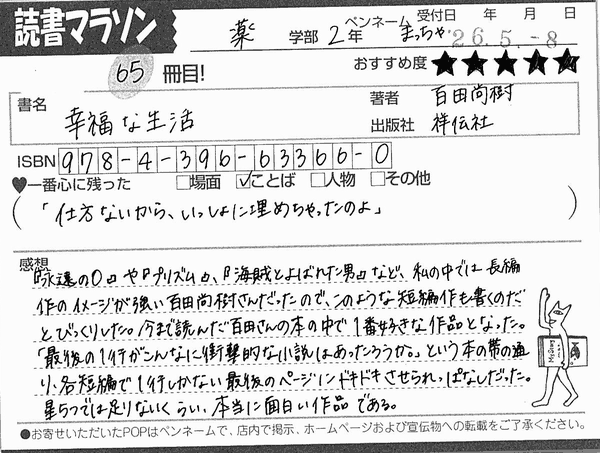 読書マラソン
薬 学部 2年 ペンネーム まっちゃ 受付日 年 月 日
26.5.-8
65 冊目! おすすめ度 ★★★★★
書名 幸福な生活
著者 百田尚樹
出版社 祥伝社
ISBN 978-4-396-63366-0
♥一番心に残った □場面 ☑ことば □人物 □その他
(「仕方ないから、いっしょに埋めちゃったのよ」)
感想
『永遠の0』や『プリズム』、『海賊とよばれた男』など、私の中では長編
作のイメージが強い百田尚樹さんだったので、このような短編作も書くのだ
とびっくりした。今まで読んだ百田さんの本の中で1番好きな作品となった。
「最後の1行がこんなに衝撃的な小説はあったろうか。」という本の帯の通
り、各短編で1行しかない最後のページにドキドキさせられっぱなしだった。
星5つでは足りないくらい、本当に面白い作品である。
●お寄せいただいたPOPはペンネームで、店内で掲示、ホームページおよび宣伝物への転載をご了承ください。